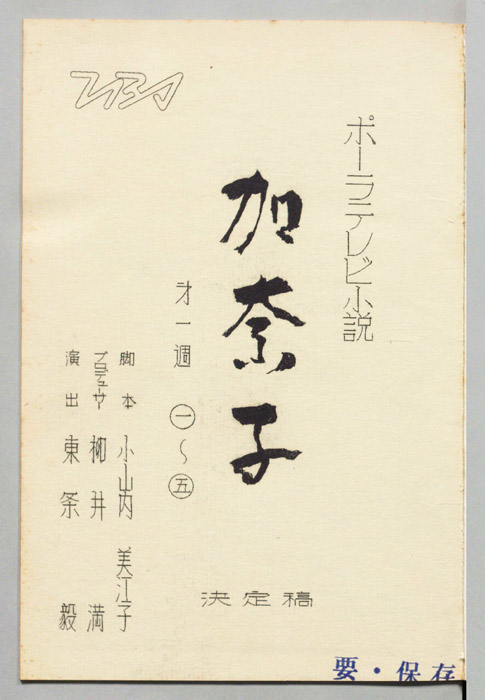 TBS
ポーラテレビ小説
加奈子
才一週 ㊀〜㊄
脚本 小山内 美江子
プロデューサー 柳井 満
演出 東条 毅
決定稿
要・保存